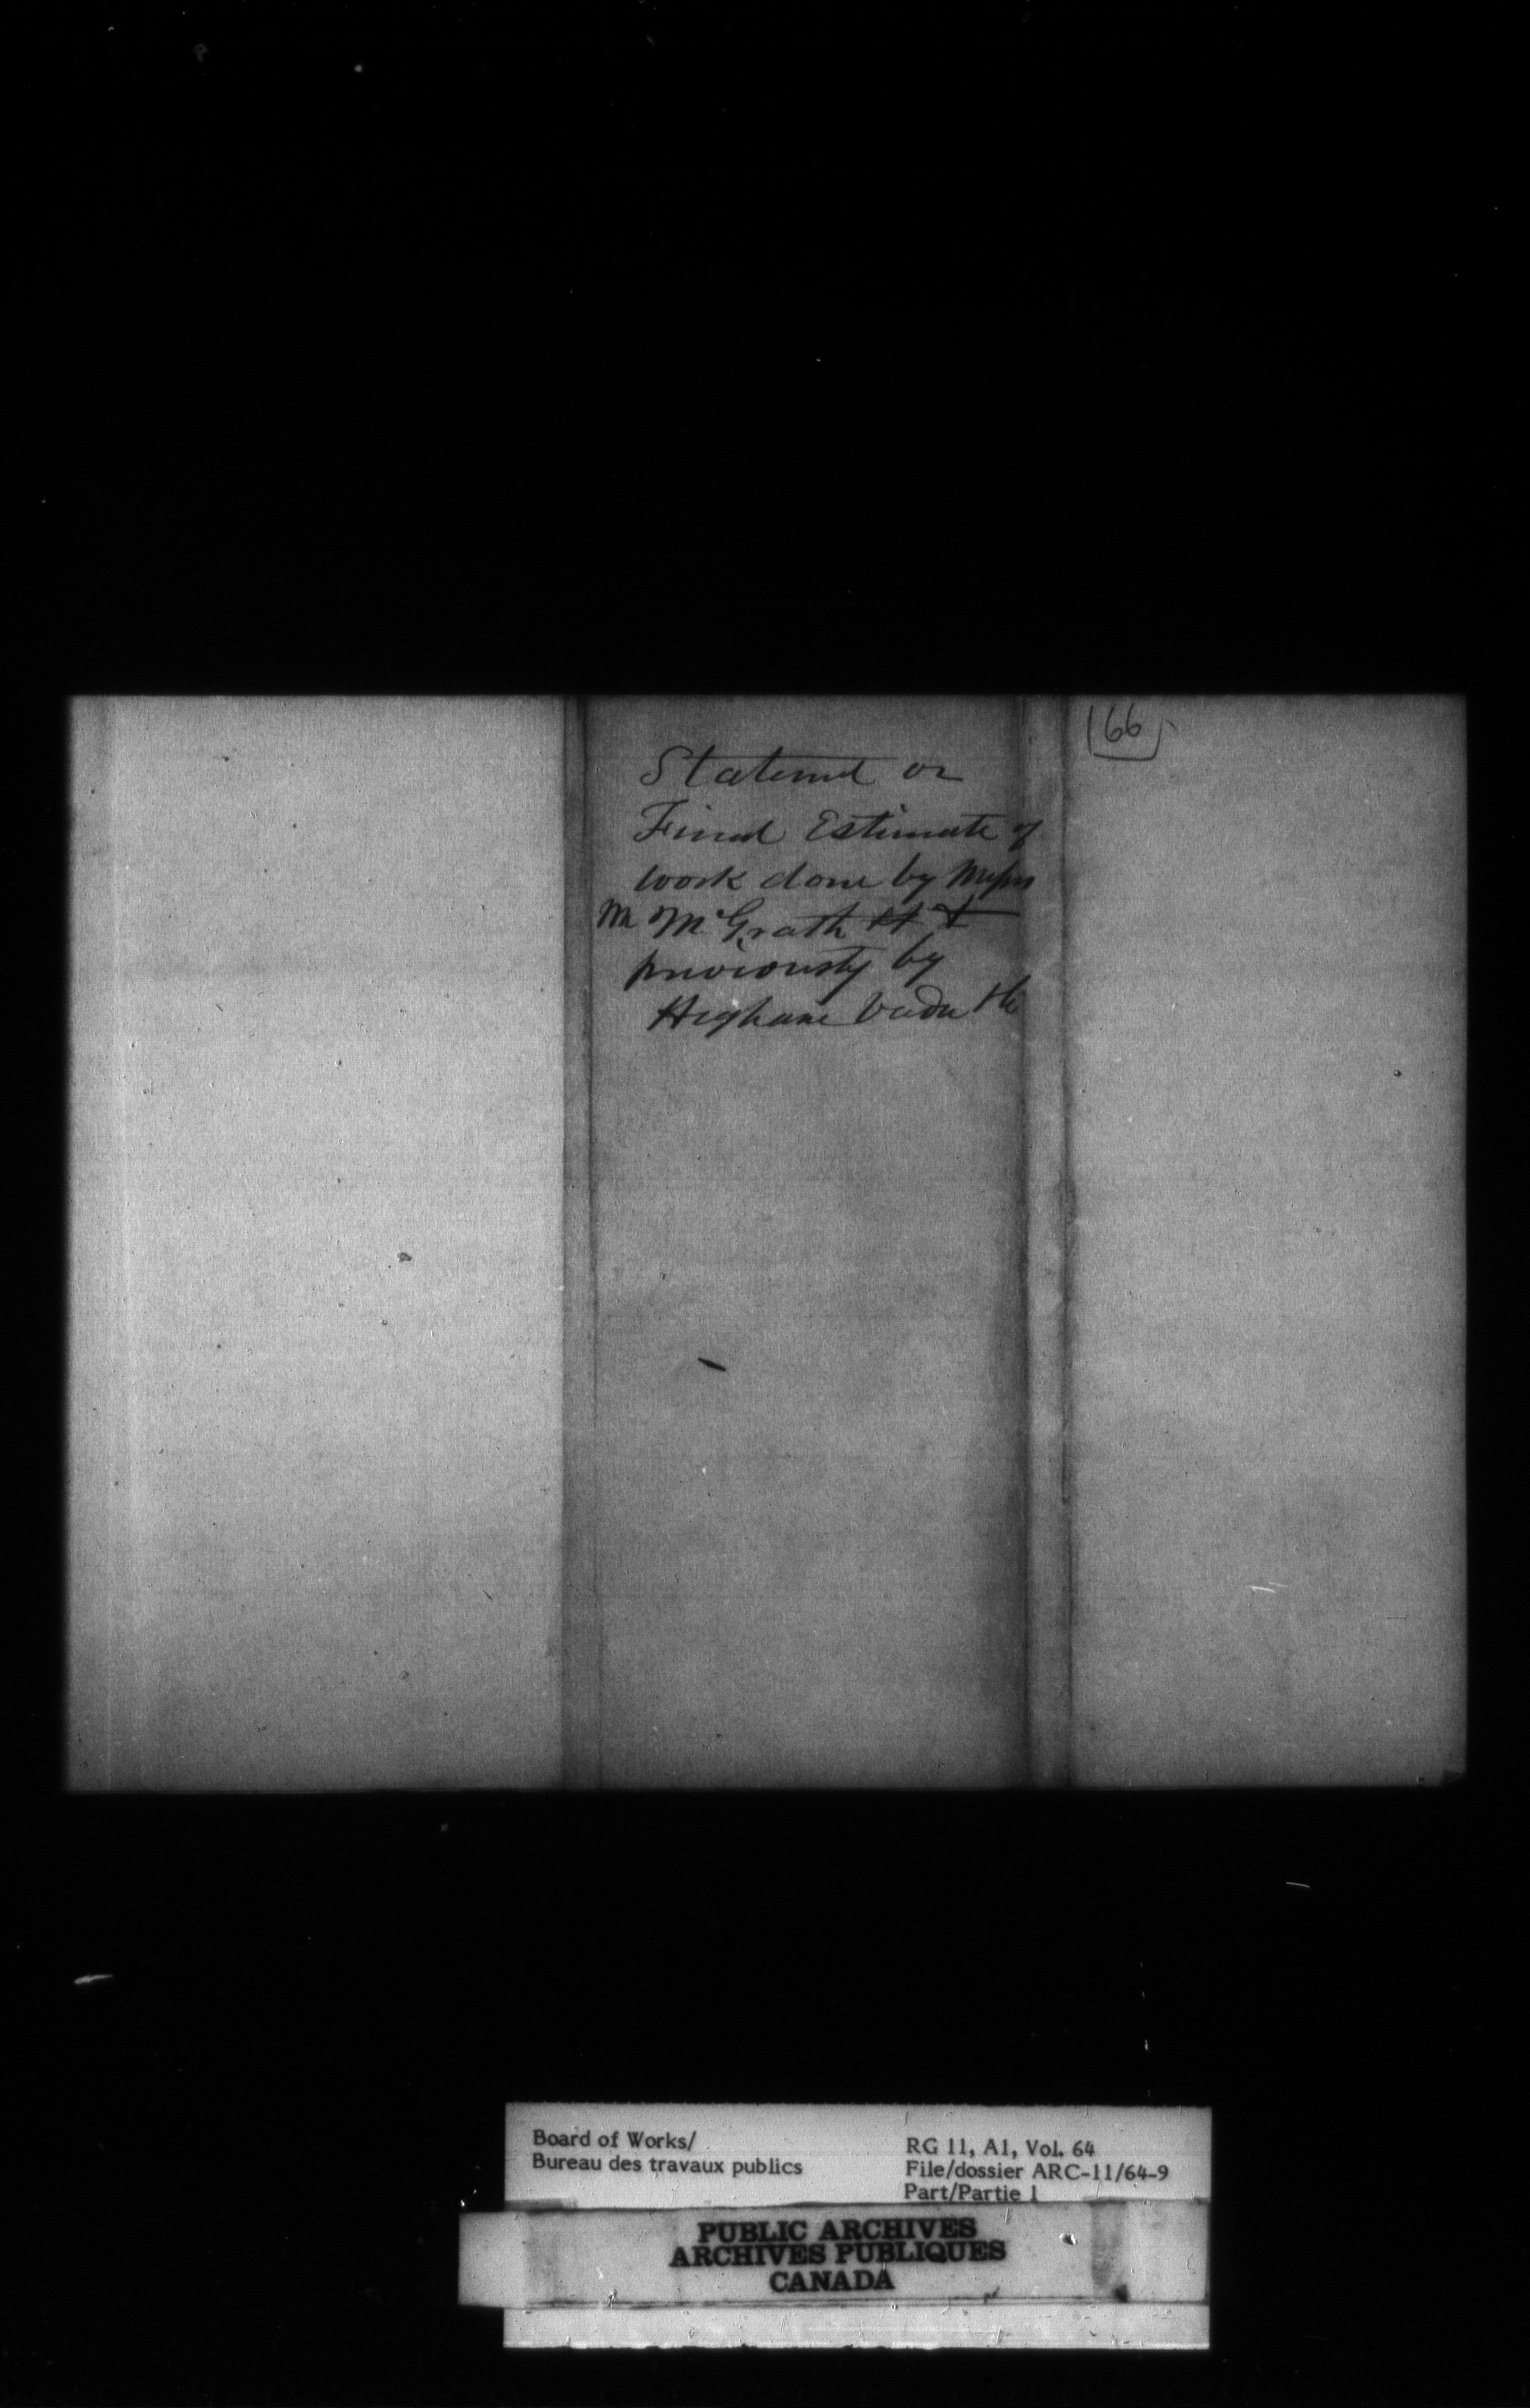 66
Statement or
Final Estimate of
work done by Messrs
Wm McGrath &
previously by
Board of Works/
Bureau des travaux publics
RG 11, A1, Vol. 64
File/dossier ARC-11/64-9
Part/Partie 1
PUBLIC ARCHIVES
ARCHIVES PUBLIQUES
CANADA